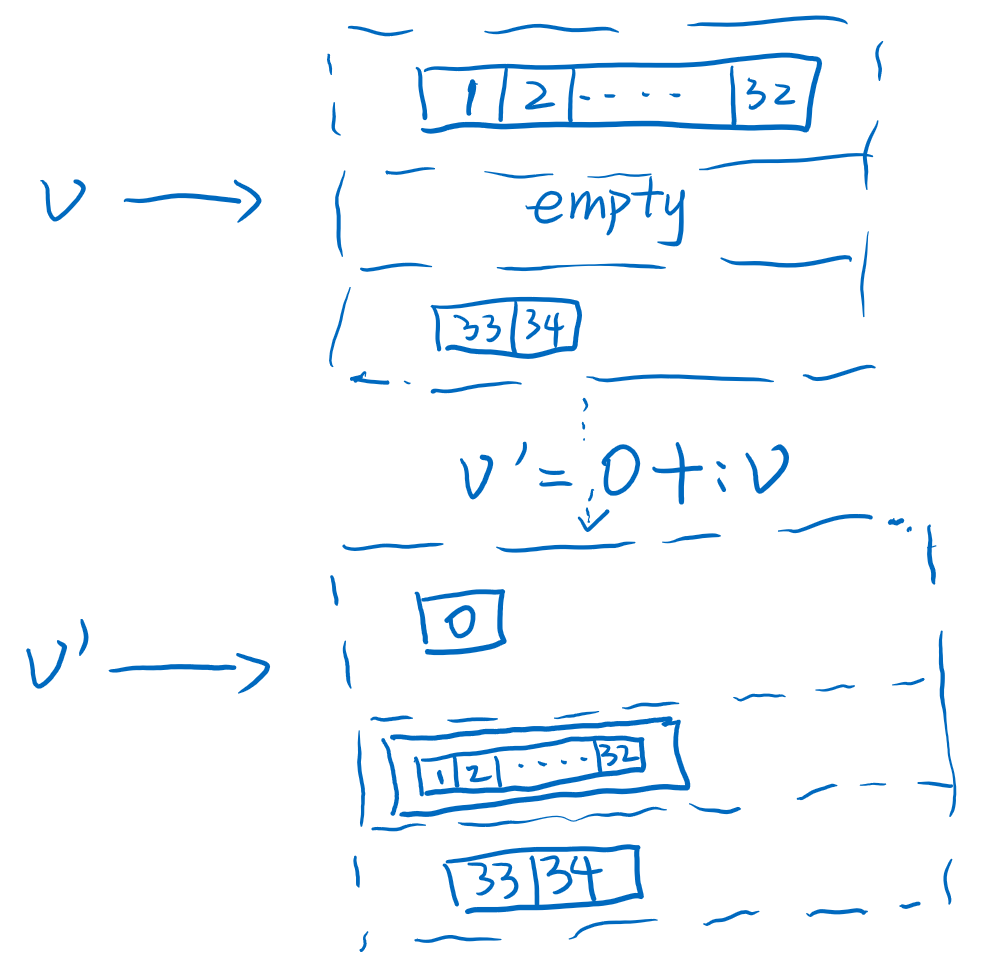 1 2 .... 32
ν → empty
33 34
ν' = 0 +: ν
0
ν' →
1 2 .... 32
33 34